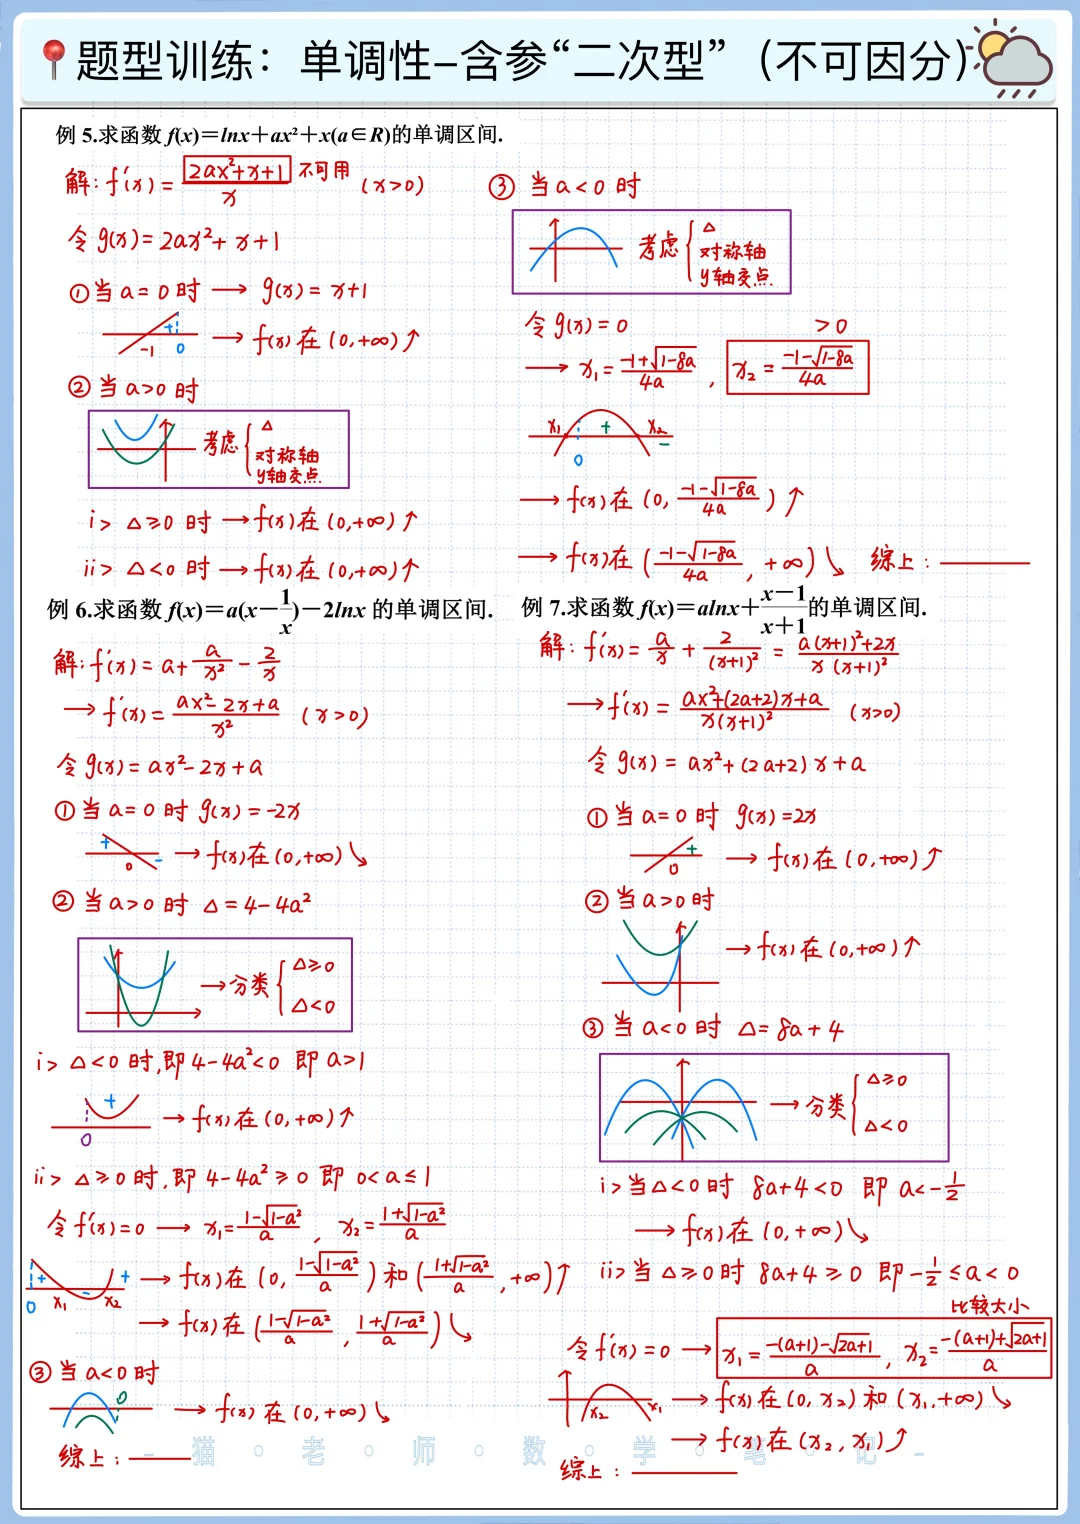 题型训练：单调性-含参“二次型”（不可因分）
例 5.求函数 f(x)＝lnx＋ax²＋x(a∈R)的单调区间.
解: f′(x) = (2ax²+x+1)/x 不可用 (x>0)
令 g(x) = 2ax² + x+1
① 当 a=0 时 → g(x) = x+1
+ -1 0 → f(x) 在 (0,+∞)↑
② 当 a>0 时
考虑 { △ 对称轴 y轴交点…
i> △≥0 时 → f(x) 在 (0,+∞)↑
ii> △<0 时 → f(x) 在 (0,+∞)↑
③ 当 a<0 时
考虑 { △ 对称轴 y轴交点…
令 g(x) = 0 >0
→ x₁ = (-1+√(1-8a))/4a , x₂ = (-1-√(1-8a))/4a
x₁ + x₂ - 0
→ f(x) 在 (0, (-1-√(1-8a))/4a ) ↑
→ f(x) 在 ( (-1-√(1-8a))/4a , +∞)↘ 综上: ____
例 6.求函数 f(x)＝a(x－1/x)－2lnx 的单调区间.
解: f′(x) = a + a/x² - 2/x
→ f′(x) = (ax²-2x+a)/x² (x>0)
令 g(x) = ax²-2x+a
① 当 a=0 时 g(x) = -2x
+ 0 - → f(x) 在 (0,+∞)↘
② 当 a>0 时 △ = 4-4a²
→ 分类 { △≥0 △<0
i> △<0 时,即 4-4a²<0 即 a>1
+ 0 → f(x) 在 (0,+∞)↑
ii> △≥0 时,即 4-4a²≥0 即 0<a≤1
令 f′(x) = 0 → x₁ = (1-√(1-a²))/a , x₂ = (1+√(1-a²))/a
+ 0 x₁ - x₂ + → f(x) 在 (0, (1-√(1-a²))/a ) 和 ( (1+√(1-a²))/a , +∞)↑
→ f(x) 在 ( (1-√(1-a²))/a , (1+√(1-a²))/a )↘
③ 当 a<0 时
0 → f(x) 在 (0,+∞)↘
综上: ____
例 7.求函数 f(x)＝alnx＋(x－1)/(x＋1)的单调区间.
解: f′(x) = a/x + 2/(x+1)² = (a(x+1)²+2x)/(x(x+1)²)
→ f′(x) = (ax²+(2a+2)x+a)/(x(x+1)²) (x>0)
令 g(x) = ax²+(2a+2)x+a
① 当 a=0 时 g(x) = 2x
+ 0 → f(x) 在 (0,+∞)↑
② 当 a>0 时
→ f(x) 在 (0,+∞)↑
③ 当 a<0 时 △ = 8a+4
→ 分类 { △≥0 △<0
i> 当△<0 时 8a+4<0 即 a<-1/2
→ f(x) 在 (0,+∞)↘
ii> 当 △≥0 时 8a+4≥0 即 -1/2≤a<0
比较大小
令 f′(x) = 0 → x₁ = (-(a+1)-√(2a+1))/a , x₂ = (-(a+1)+√(2a+1))/a
x₂ x₁ → f(x) 在 (0, x₂) 和 (x₁,+∞)↘
→ f(x) 在 (x₂, x₁)↗
综上: ____
- 猫 · 老 · 师 · 数 · 学 · 笔 · 记 -